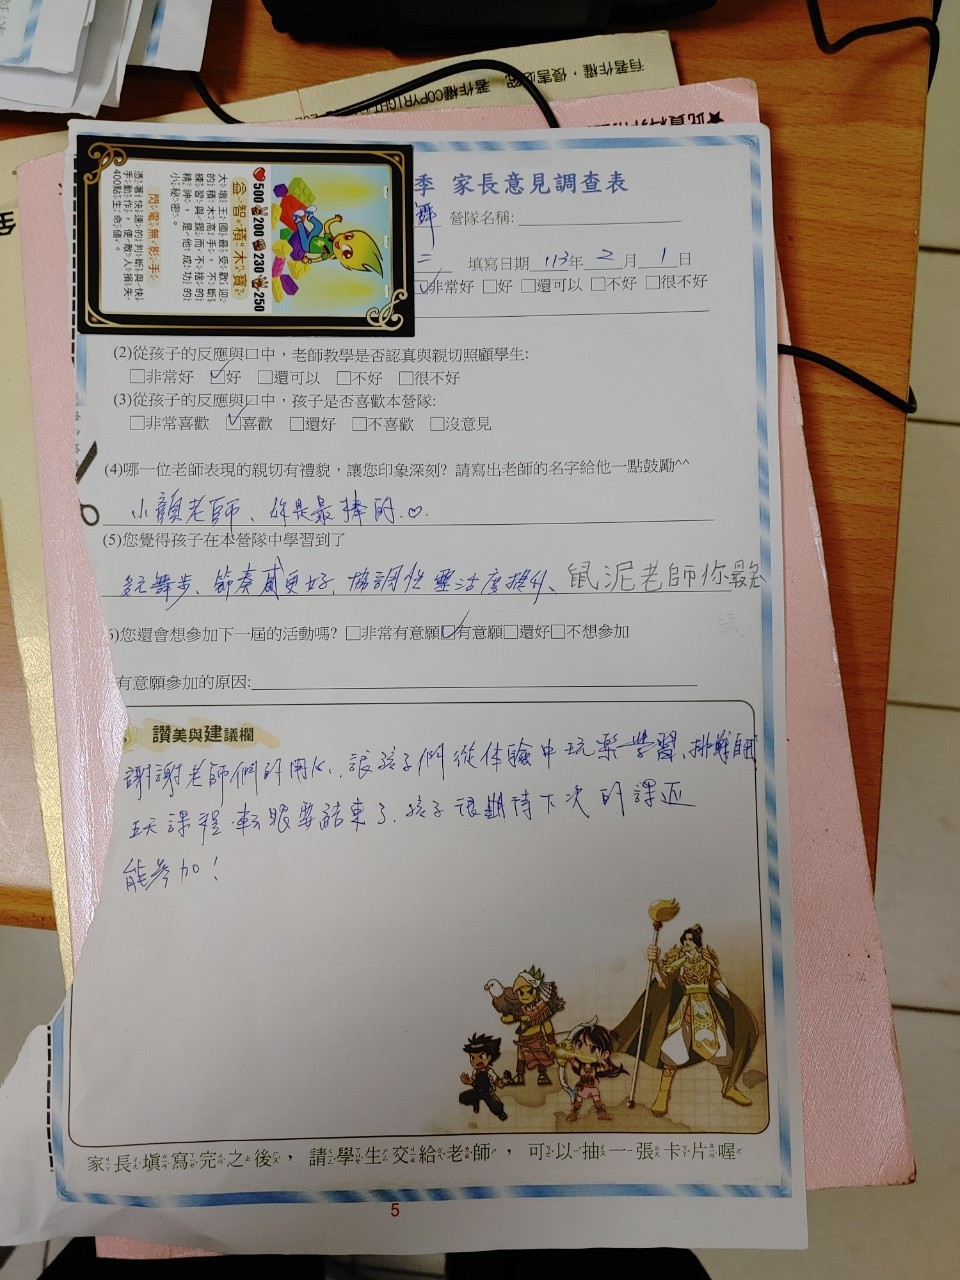 有著作權，侵害必究
著作權COPYRIGHT
季 家長意見調查表
舞 營隊名稱:
二 填寫日期 113年 2 月 1 日
☑非常好 □好 □還可以 □不好 □很不好
500 200 230 250
金智積木寶
大墩王國最受歡迎
的積木高手，不斷
練習與鍥而不捨的
精神，是他成功的
小秘密。
閃電無影手
憑著快速的判斷與快
手動作，使敵人損失
400點生命值。
(2)從孩子的反應與口中，老師教學是否認真與親切照顧學生:
□非常好 ☑好 □還可以 □不好 □很不好
(3)從孩子的反應與口中，孩子是否喜歡本營隊:
□非常喜歡 ☑喜歡 □還好 □不喜歡 □沒意見
(4)哪一位老師表現的親切有禮貌，讓您印象深刻? 請寫出老師的名字給他一點鼓勵^^
小顏老師、妳是最棒的.♡.
(5)您覺得孩子在本營隊中學習到了
舞步、節奏感更好, 協調性 靈活度提升、鼠泥老師你最
6)您還會想參加下一屆的活動嗎? □非常有意願☑有意願□還好□不想參加
有意願參加的原因:
讚美與建議欄
謝謝老師們的用心, 讓孩子們從体驗中玩樂學習、挑戰自困
五天課程 転眼要結束了. 孩子很期待下次的課
能參加!
家長填寫完之後，請學生交給老師，可以抽一張卡片喔
5